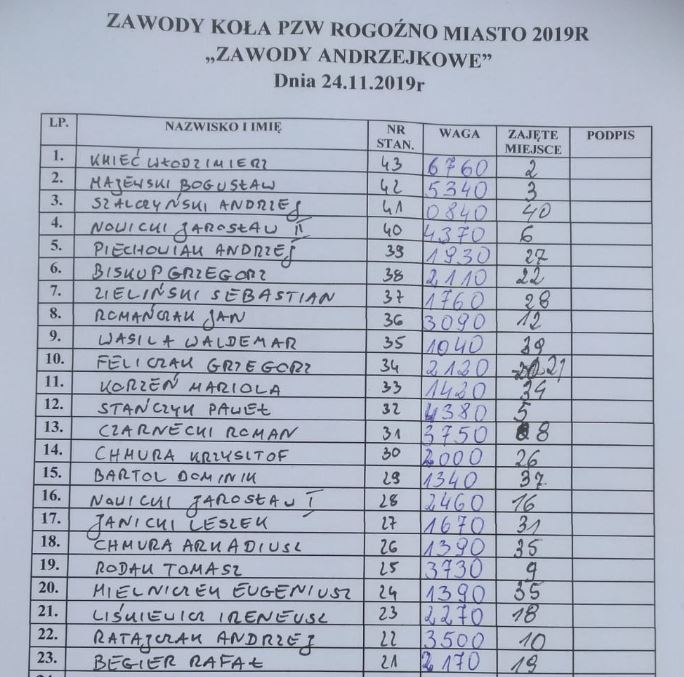 ZAWODY KOŁA PZW ROGOŹNO MIASTO 2019R
„ZAWODY ANDRZEJKOWE”
Dnia 24.11.2019r
LP. NAZWISKO I IMIĘ NR STAN. WAGA ZAJĘTE MIEJSCE PODPIS
1. KMIEĆ WŁODZIMIERZ 43 6760 2
2. MAJEWSKI BOGUSŁAW 42 5340 3
3. SZALCZYŃSKI ANDRZEJ 41 0840 40
4. NOWICKI JAROSŁAW II 40 4370 6
5. PIECHOWIAK ANDRZEJ 39 1930 27
6. BISKUP GRZEGORZ 38 2110 22
7. ZIELIŃSKI SEBASTIAN 37 1760 28
8. ROMAŃCZAK JAN 36 3090 12
9. WASILA WALDEMAR 35 1040 39
10. FELICZAK GRZEGORZ 34 2120 21
11. KORZEŃ MARIOLA 33 1420 34
12. STAŃCZYK PAWEŁ 32 4380 5
13. CZARNECKI ROMAN 31 3750 8
14. CHMURA KRZYSITOF 30 2000 26
15. BARTOL DOMINIK 29 1340 37
16. NOWICKI JAROSŁAW I 28 2460 16
17. JANICKI LESZEK 27 1670 31
18. CHMURA ARKADIUSZ 26 1390 35
19. RODAK TOMASZ 25 3730 9
20. MIELNICZEK EUGENIUSZ 24 1390 35
21. LIŚKIEWICZ IRENEUSZ 23 2270 18
22. RATAJCZAK ANDRZEJ 22 3500 10
23. BEGIER RAFAŁ 21 2170 19